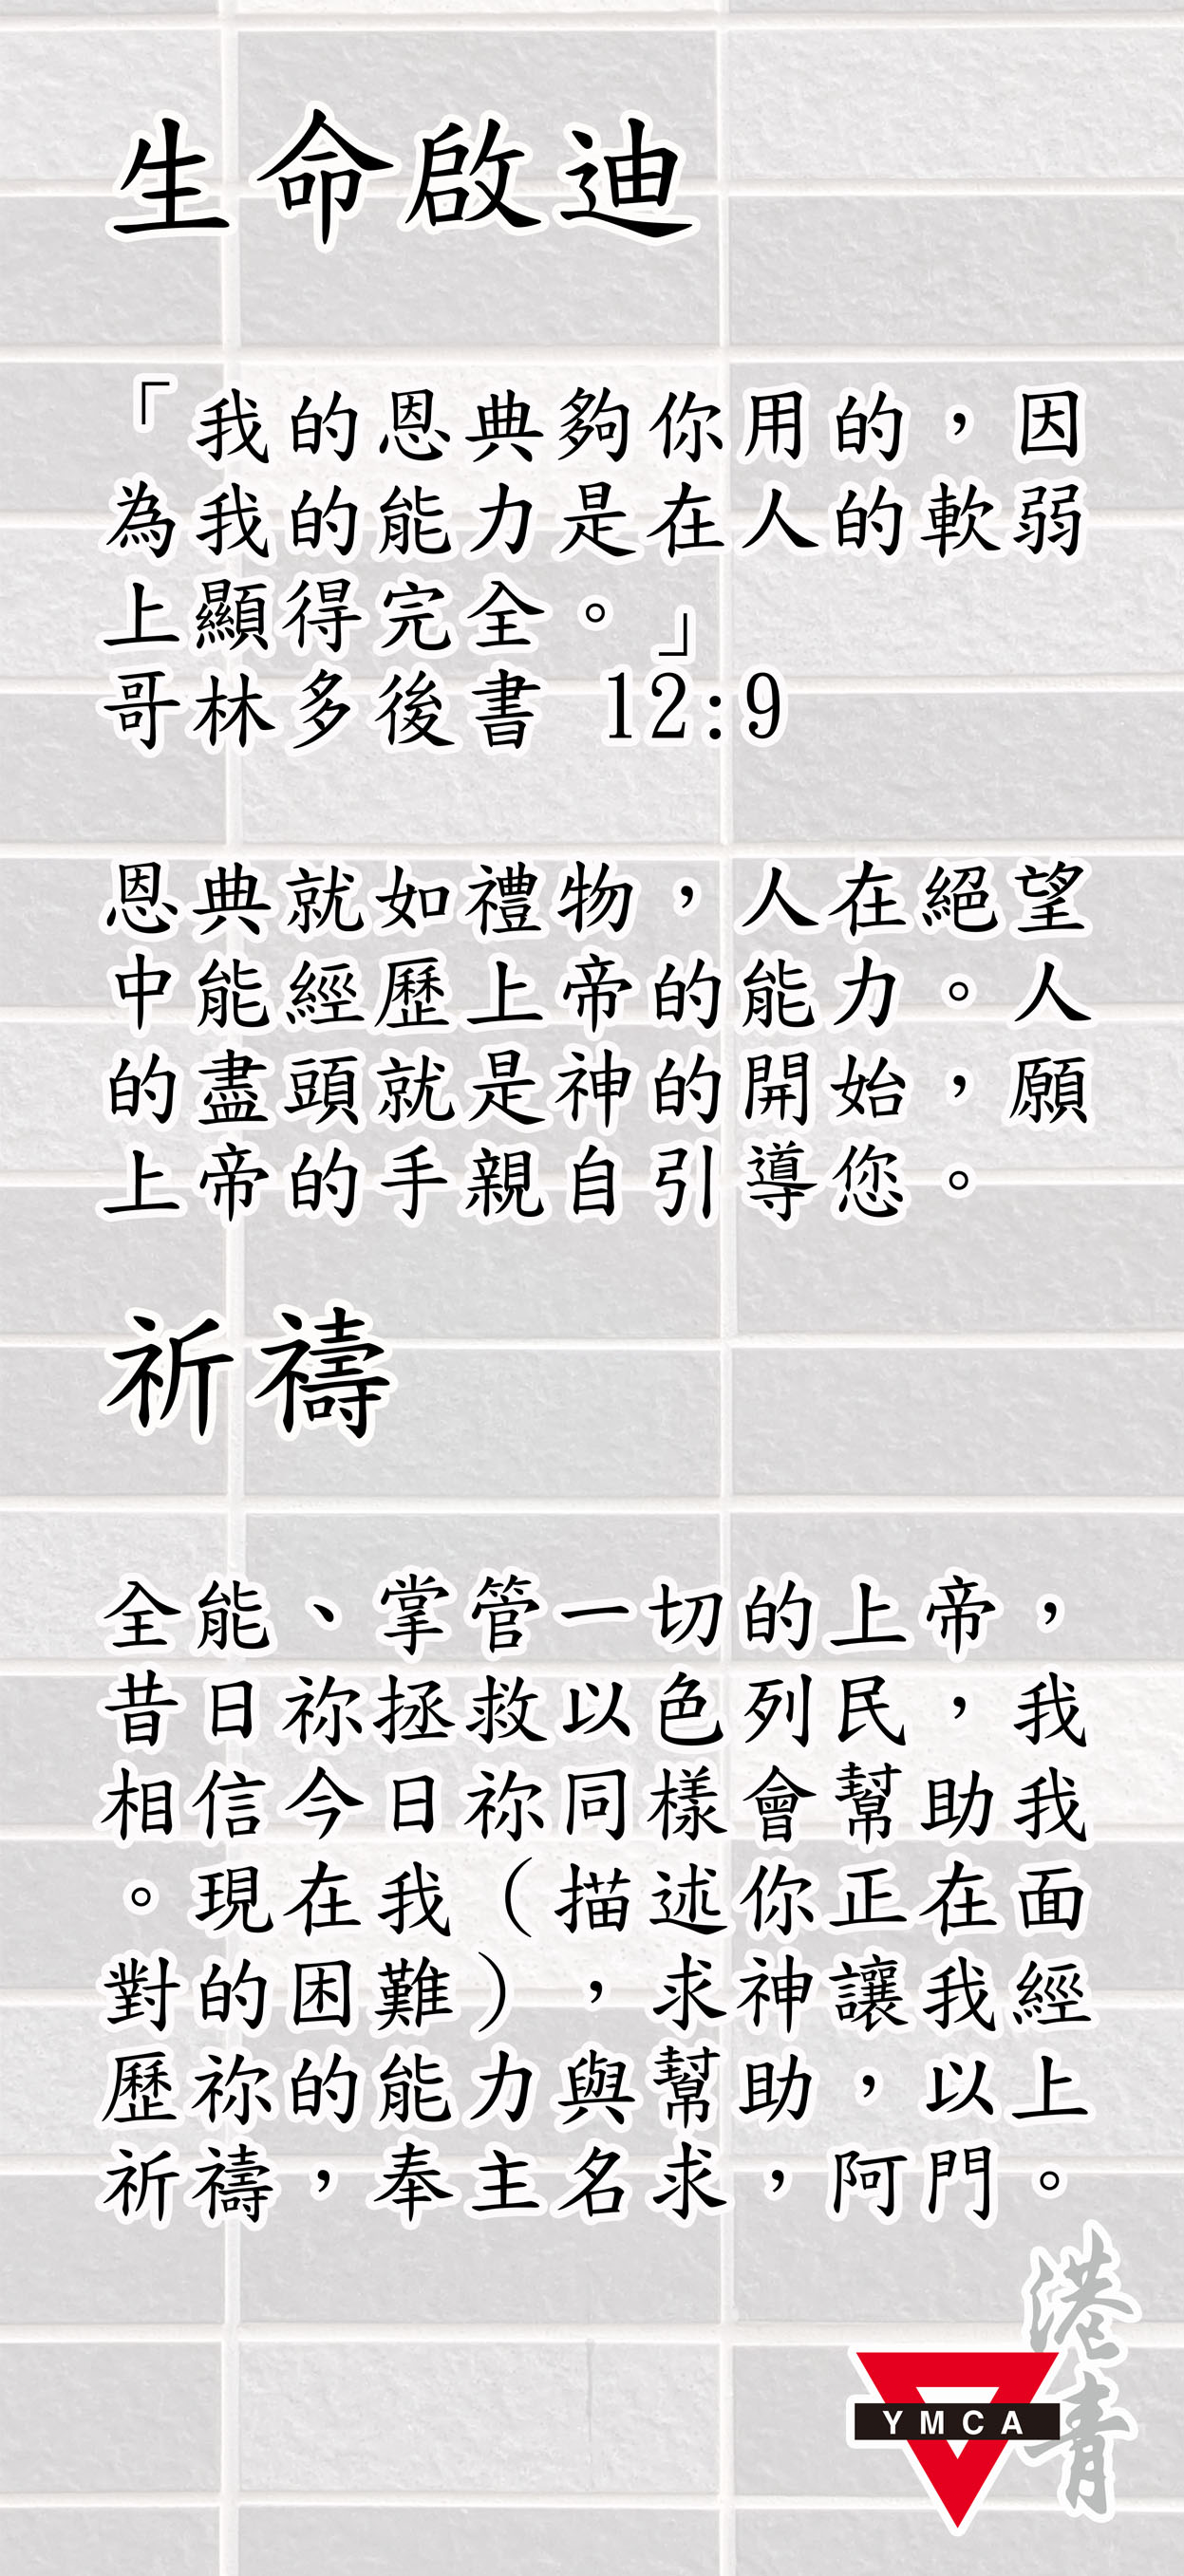 生命啟迪
「我的恩典夠你用的，因
為我的能力是在人的軟弱
上顯得完全。」
哥林多後書 12:9
恩典就如禮物，人在絕望
中能經歷上帝的能力。人
的盡頭就是神的開始，願
上帝的手親自引導您。
祈禱
全能、掌管一切的上帝，
昔日祢拯救以色列民，我
相信今日祢同樣會幫助我
。現在我（描述你正在面
對的困難），求神讓我經
歷祢的能力與幫助，以上
祈禱，奉主名求，阿門。
港青
YMCA